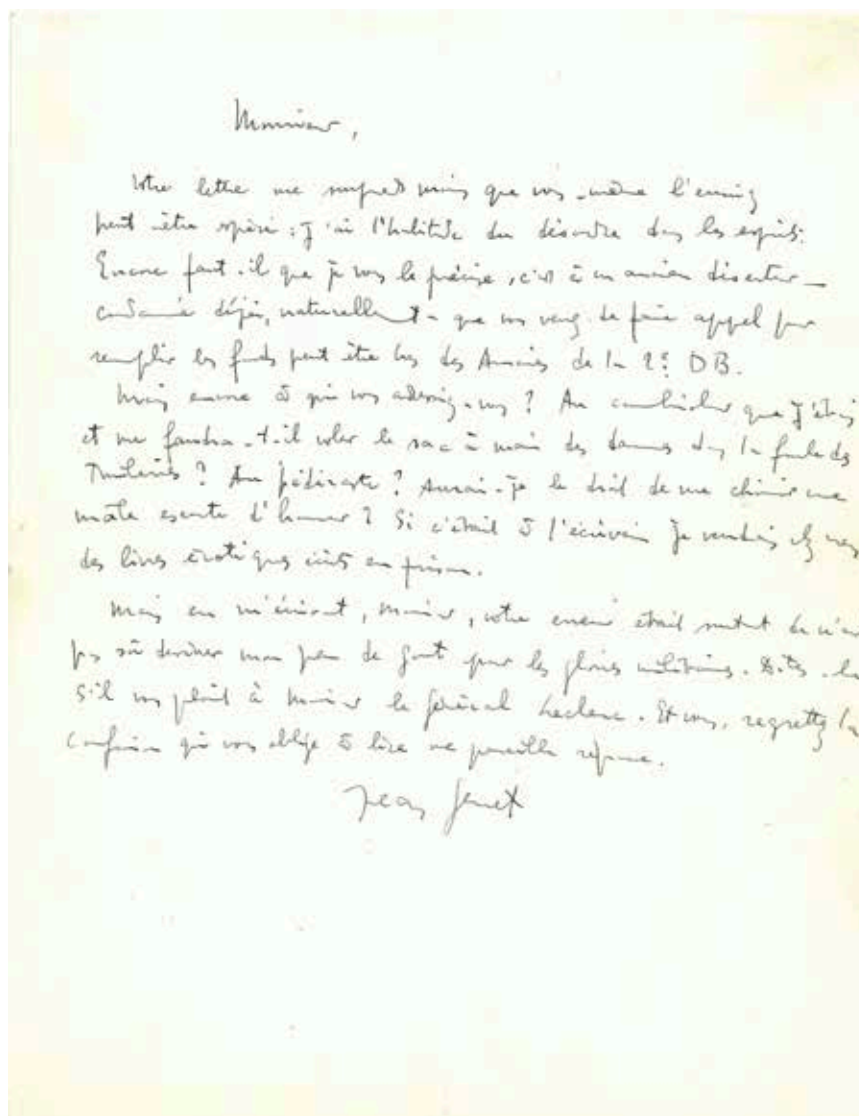 Monsieur,
Votre lettre me surprend moins que vous-même l'aurez
peut-être espéré : j'ai l'habitude du désordre dans les esprits.
Encore faut-il que je vous le précise, c'est à un ancien déserteur —
condamné déjà, naturellement — que vous venez de faire appel pour
remplir les fonds peut-être bas des Anciens de la 2e DB.
Mais encore à qui vous adressiez-vous ? Au cambrioleur que j'étais
et me faudra-t-il voler le sac à main des dames dans la foule des
Tuileries ? Au pédéraste ? Aurai-je le droit de me choisir une
mâle escorte d'honneur ? Si c'était à l'écrivain je vendrais chez vous
des livres érotiques écrits en prison.
Mais en m'écrivant, monsieur, votre erreur était surtout de n'avoir
pas su deviner mon peu de goût pour les gloires militaires. Dites-le
s'il vous plaît à monsieur le Général Leclerc. Et vous, regrettez la
confusion qui vous oblige à lire une pareille réponse.
Jean Genet